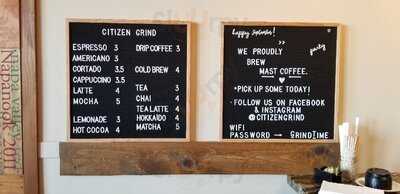 CITIZEN GRIND
ESPRESSO 3
AMERICANO 3
CORTADO 3.5
CAPPUCCINO 3.5
LATTE 4
MOCHA 5
LEMONADE 3
HOT COCOA 4
DRIP COFFEE 3
COLD BREW 4
TEA 3
CHAI 4
TEA LATTE 4
HOKKAIDO 4
MATCHA 5
happy September!
WE PROUDLY
BREW
MAST COFFEE.
*PICK UP SOME TODAY!
party
· FOLLOW US ON FACEBOOK
& INSTAGRAM
@CITIZENGRIND
WIFI
PASSWORD → GRINDTIME
Nappanook 2011